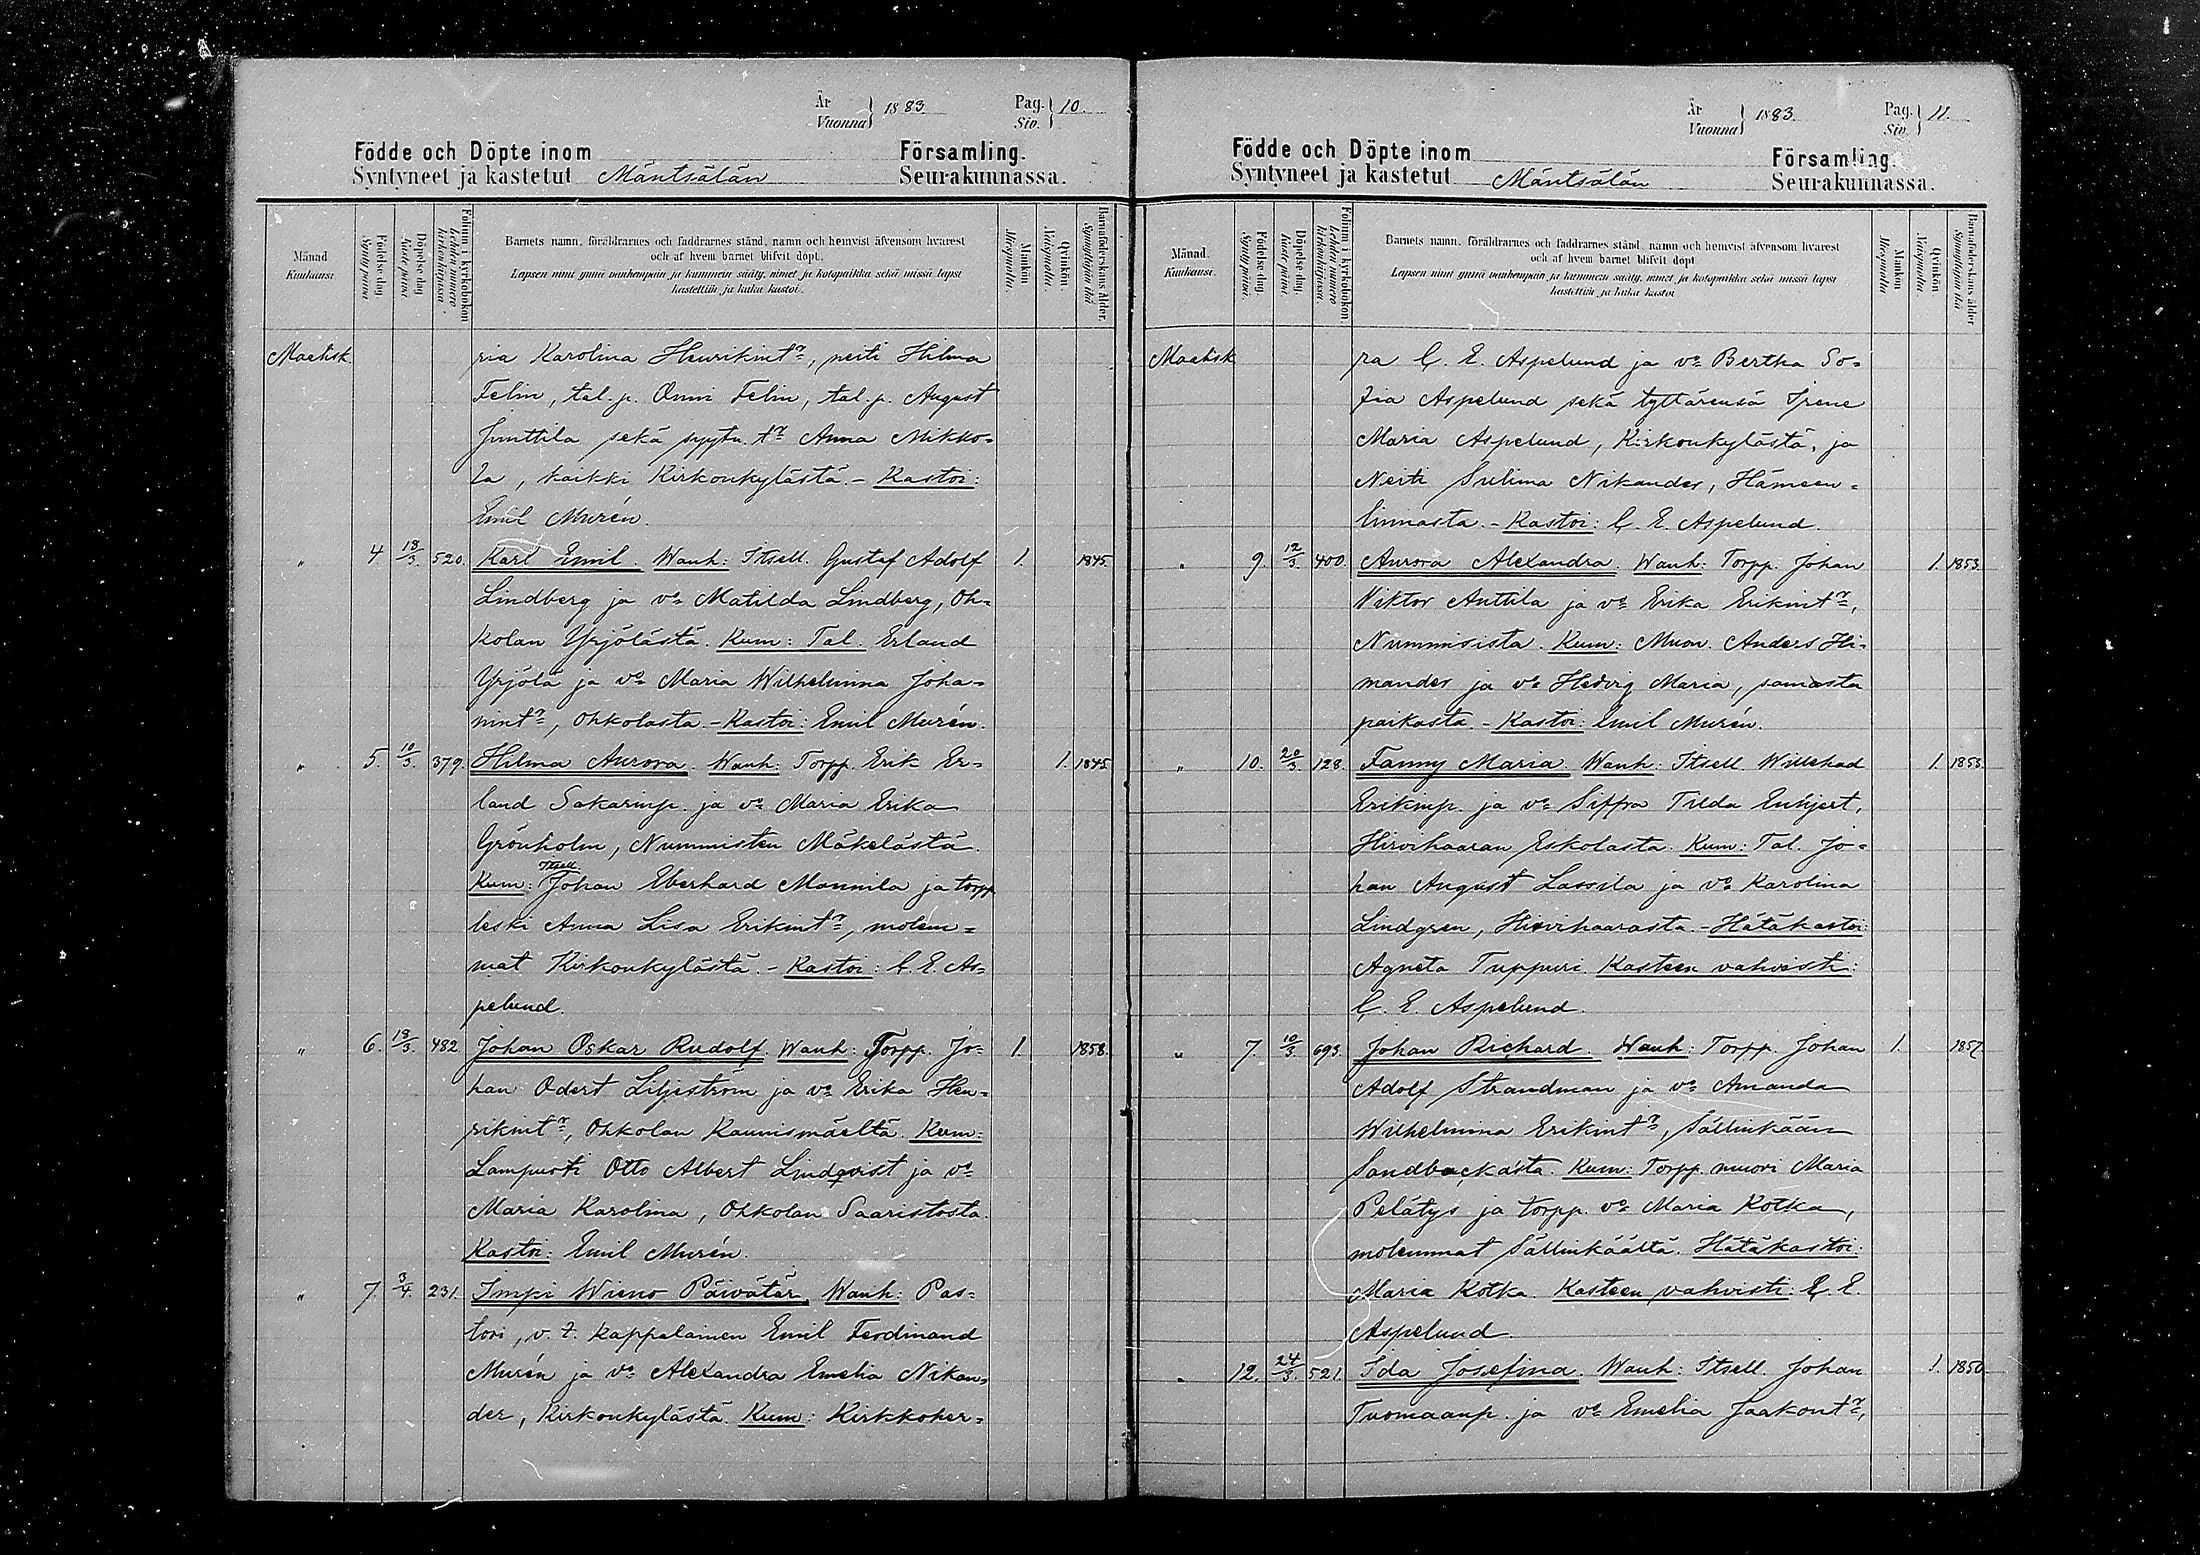 År
Vuonna } 1883.
Pag.
Siv. } 10.
Födde och Döpte inom
Syntyneet ja kastetut Mäntsälän
Församling.
Seurakunnassa.
Månad
Kuukausi.
Födelsedag.
Syntypäivä.
Döpelsedag.
Kastepäivä.
Folium i kyrkoboken
Lehden numero kirkonkirjassa.
Barnets namn, föräldrarnes och faddrarnes stånd, namn och hemvist äfvensom hvarest
och af hvem barnet blifvit döpt.
Lapsen nimi ynnä vanhempain ja kummein sääty, nimet ja kotopaikka sekä missä lapsi
kastettiin ja kuka kastoi.
Mankön.
Miespuolia.
Qvinkön.
Naispuolia.
Barnaföderskans ålder.
Synnyttäjän ikä.
Maalisk ria Karolina Henrikint:r, neiti Hilma
Felin, tal. p. Onni Felin, tal. p. August
Junttila sekä t:r Anna Mikko-
la, kaikki Kirkonkylästä. - Kastoi:
Emil Murén.
" 4 18/3. 520. Karl Emil. Wanh: Itsell. Gustaf Adolf 1. 1845.
Lindberg ja v:o Matilda Lindberg, Oh-
kolan Yrjölästä. Kum: Tal. Erland
Yrjölä ja v:o Maria Wilhelmina Joha-
nint:r, Ohkolasta. - Kastoi: Emil Murén.
" 5. 10/3. 379. Hilma Aurora. Wanh: Torpp. Erik Er- 1. 1845.
land Sakarinp. ja v:o Maria Erika
Grönholm, Nummisten Mäkelästä.
Itsell
Kum: Johan Eberhard Mannila ja torpp
leski Anna Lisa Erikint:r, molem-
mat Kirkonkylästä. - Kastoi: C. E. As-
pelund.
" 6. 18/3. 482 Johan Oskar Rudolf. Wanh: Torpp. Jo- 1. 1858.
han Odert Liljeström ja v:o Erika Hen-
rikint:r, Ohkolan Kaunismäeltä. Kum:
Lampuoti Otto Albert Lindqvist ja v:o
Maria Karolina, Ohkolan Saaristosta.
Kastoi: Emil Murén.
" 7. 3/4. 231. Impi Wieno Päivätär. Wanh: Pas-
tori, v. t. kappalainen Emil Ferdinand
Murén ja v:o Alexandra Emelia Nikan-
der, Kirkonkylästä. Kum: Kirkkoher-
År
Vuonna } 1883.
Pag.
Siv. } 11.
Födde och Döpte inom
Syntyneet ja kastetut Mäntsälän
Församling.
Seurakunnassa.
Månad.
Kuukausi.
Födelsedag.
Syntypäivä.
Döpelsedag.
Kastepäivä.
Folium i kyrkoboken
Lehden numero kirkonkirjassa.
Barnets namn, föräldrarnes och faddrarnes stånd, namn och hemvist äfvensom hvarest
och af hvem barnet blifvit döpt
Lapsen nimi ynnä vanhempain ja kummein sääty, nimet ja kotopaikka sekä missä lapsi
kastettiin ja kuka kastoi
Mankön
Miespuolia
Qvinkön.
Naispuolia.
Barnaföderskans ålder.
Synnyttäjän ikä
Maalisk ra C. E. Aspelund ja v:o Bertha So-
fia Aspelund sekä tyttärensä Irene
Maria Aspelund, Kirkonkylästä, ja
Neiti Sulima Nikander, Hämeen-
linnasta. - Kastoi: C. E. Aspelund.
" 9. 12/3 400. Aurora Alexandra. Wanh: Torpp. Johan 1. 1853.
Viktor Anttila ja v:o Erika Erikint:r,
Nummisista. Kum: Muon. Anders Hi-
mander ja v:o Hedvig Maria, samasta
paikasta. - Kastoi: Emil Murén.
" 10. 20/3 128. Fanny Maria. Wanh: Itsell. Willehad 1. 1853.
Erikinp. ja v:o Siffra Tilda Enhjert,
Hirvihaaran Eskolasta. Kum: Tal. Jo-
han August Lassila ja v:o Karolina
Lindgren, Hirvihaarasta. - Hätäkastoi:
Agneta Tuppuri. Kasteen vahvisti:
C. E. Aspelund.
" 7. 10/3 693. Johan Richard. Wanh: Torpp. Johan 1. 1857.
Adolf Strandman ja v:o Amanda
Wilhelmina Erikint:r, Sällinkään
Sandbackasta. Kum: Torpp. muori Maria
Pelätys ja torpp. v:o Maria Kotka,
molemmat Sällinkäältä. Hätäkastoi:
Maria Kotka. Kasteen vahvisti: C. E.
Aspelund.
" 12. 24/3. 521. Ida Josefina. Wanh: Itsell. Johan 1. 1850.
Tuomaanp. ja v:o Emelia Jaakont:r,